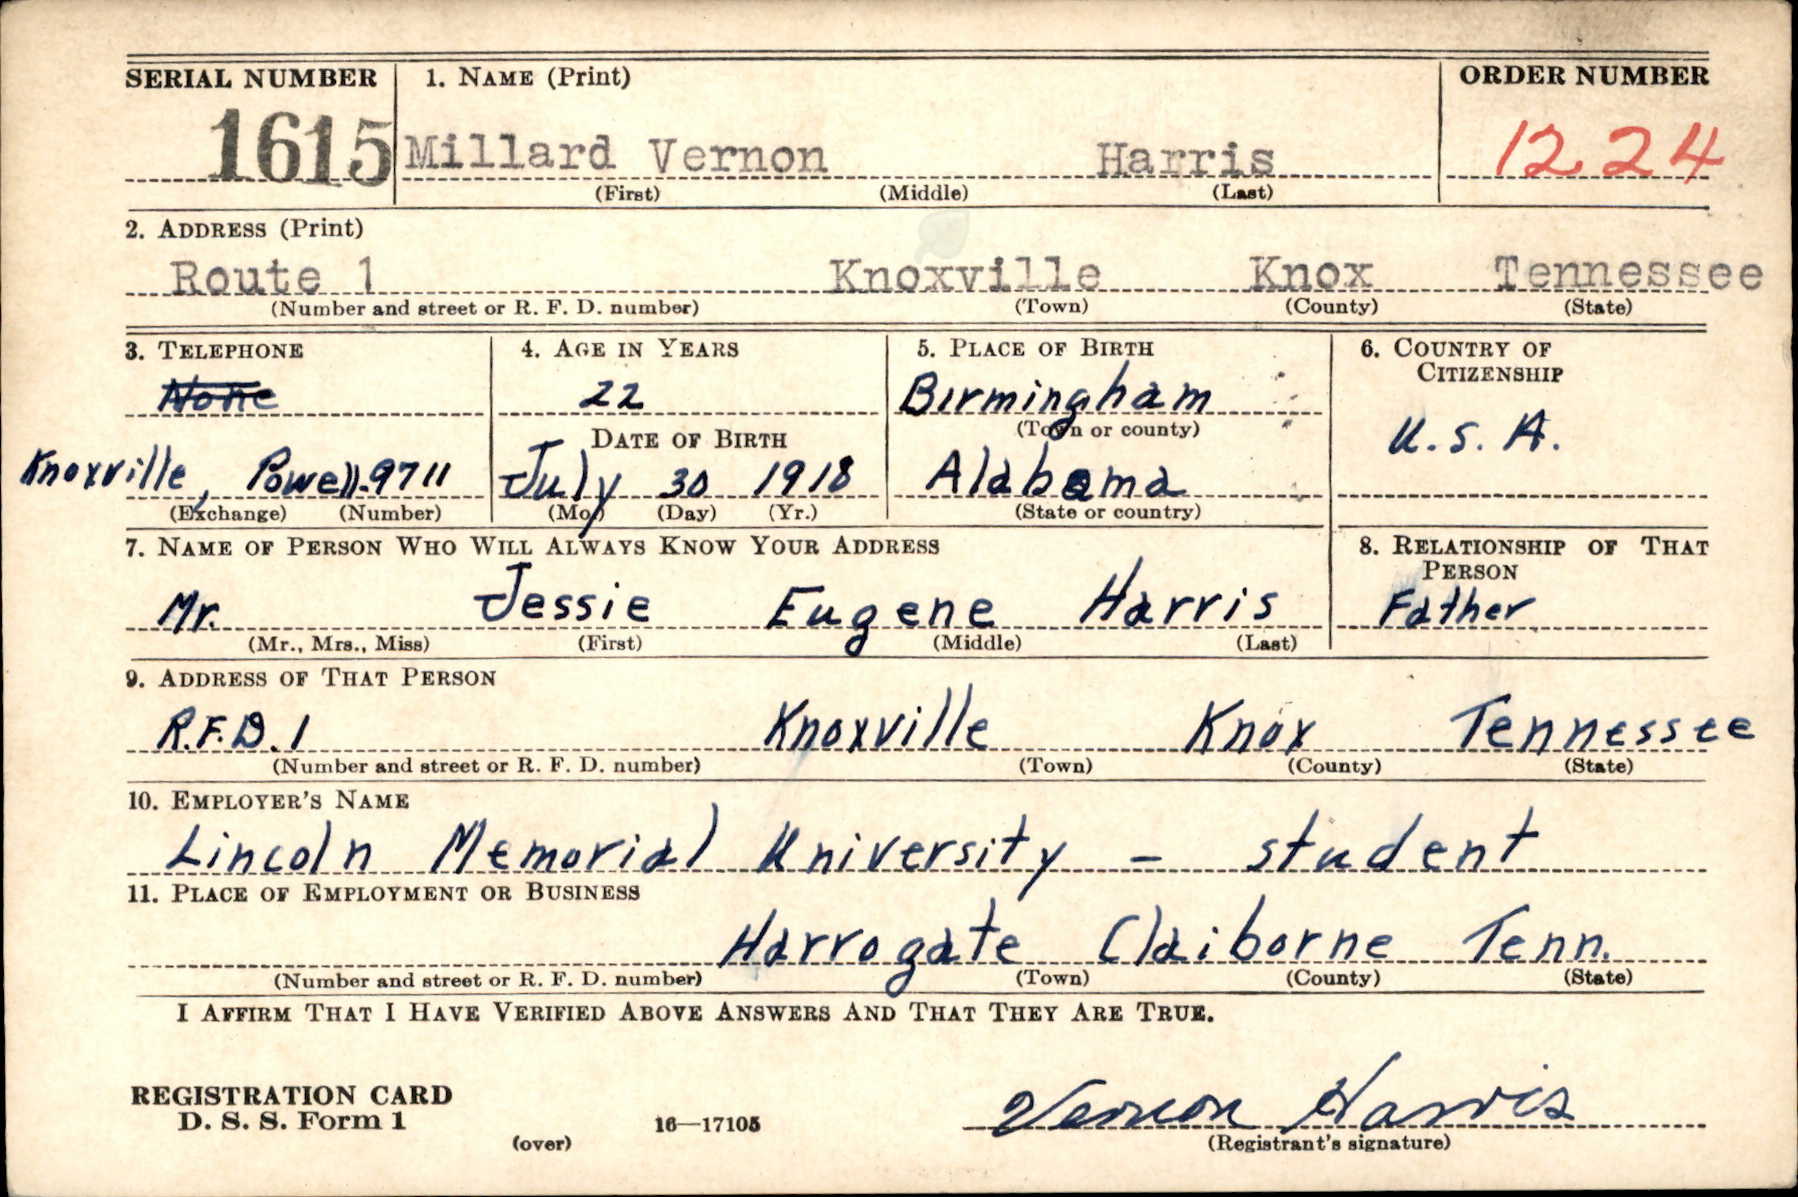 SERIAL NUMBER 1. NAME (Print) ORDER NUMBER
1615 Millard Vernon Harris 1224
(First) (Middle) (Last)
2. ADDRESS (Print)
Route 1 Knoxville Knox Tennessee
(Number and street or R. F. D. number) (Town) (County) (State)
3. TELEPHONE 4. AGE IN YEARS 5. PLACE OF BIRTH 6. COUNTRY OF CITIZENSHIP
None 22 Birmingham U.S.A.
DATE OF BIRTH (Town or county)
Knoxville, Powell-9711 July 30 1918 Alabama
(Exchange) (Number) (Mo.) (Day) (Yr.) (State or country)
7. NAME OF PERSON WHO WILL ALWAYS KNOW YOUR ADDRESS 8. RELATIONSHIP OF THAT PERSON
Mr. Jessie Eugene Harris Father
(Mr., Mrs., Miss) (First) (Middle) (Last)
9. ADDRESS OF THAT PERSON
R.F.D. 1 Knoxville Knox Tennessee
(Number and street or R. F. D. number) (Town) (County) (State)
10. EMPLOYER'S NAME
Lincoln Memorial University - student
11. PLACE OF EMPLOYMENT OR BUSINESS
Harrogate Claiborne Tenn.
(Number and street or R. F. D. number) (Town) (County) (State)
I AFFIRM THAT I HAVE VERIFIED ABOVE ANSWERS AND THAT THEY ARE TRUE.
REGISTRATION CARD
D. S. S. Form 1 16—17105 Vernon Harris
(over) (Registrant's signature)